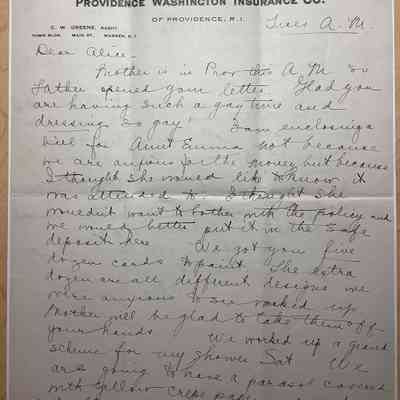 PROVIDENCE WASHINGTON INSURANCE CO.
OF PROVIDENCE, R.I.
C. W. GREENE, AGENT
TOWN BLDG. MAIN ST. WARREN, R.I.
Tues A.M.
Dear Alice-
Mother is in Prov this A.M so
Father opened your letter. Glad you
are having such a gay time and
dressing so gay! I am enclosing a
bill for Aunt Emma not because
we are anxious for the money but because
I thought she would like to know it
was attended to. I thought she
wouldn't want to bother with the policy and
we would better put it in the safe
deposit here. We got you five
dozen cards to paint. The extra
dozen are all different designs we
were anxious to see worked up
Mother will be glad to take them off
your hands. We worked up a grand
scheme for my shower Sat. We
are going to have a parasol covered
with yellow crepe paper